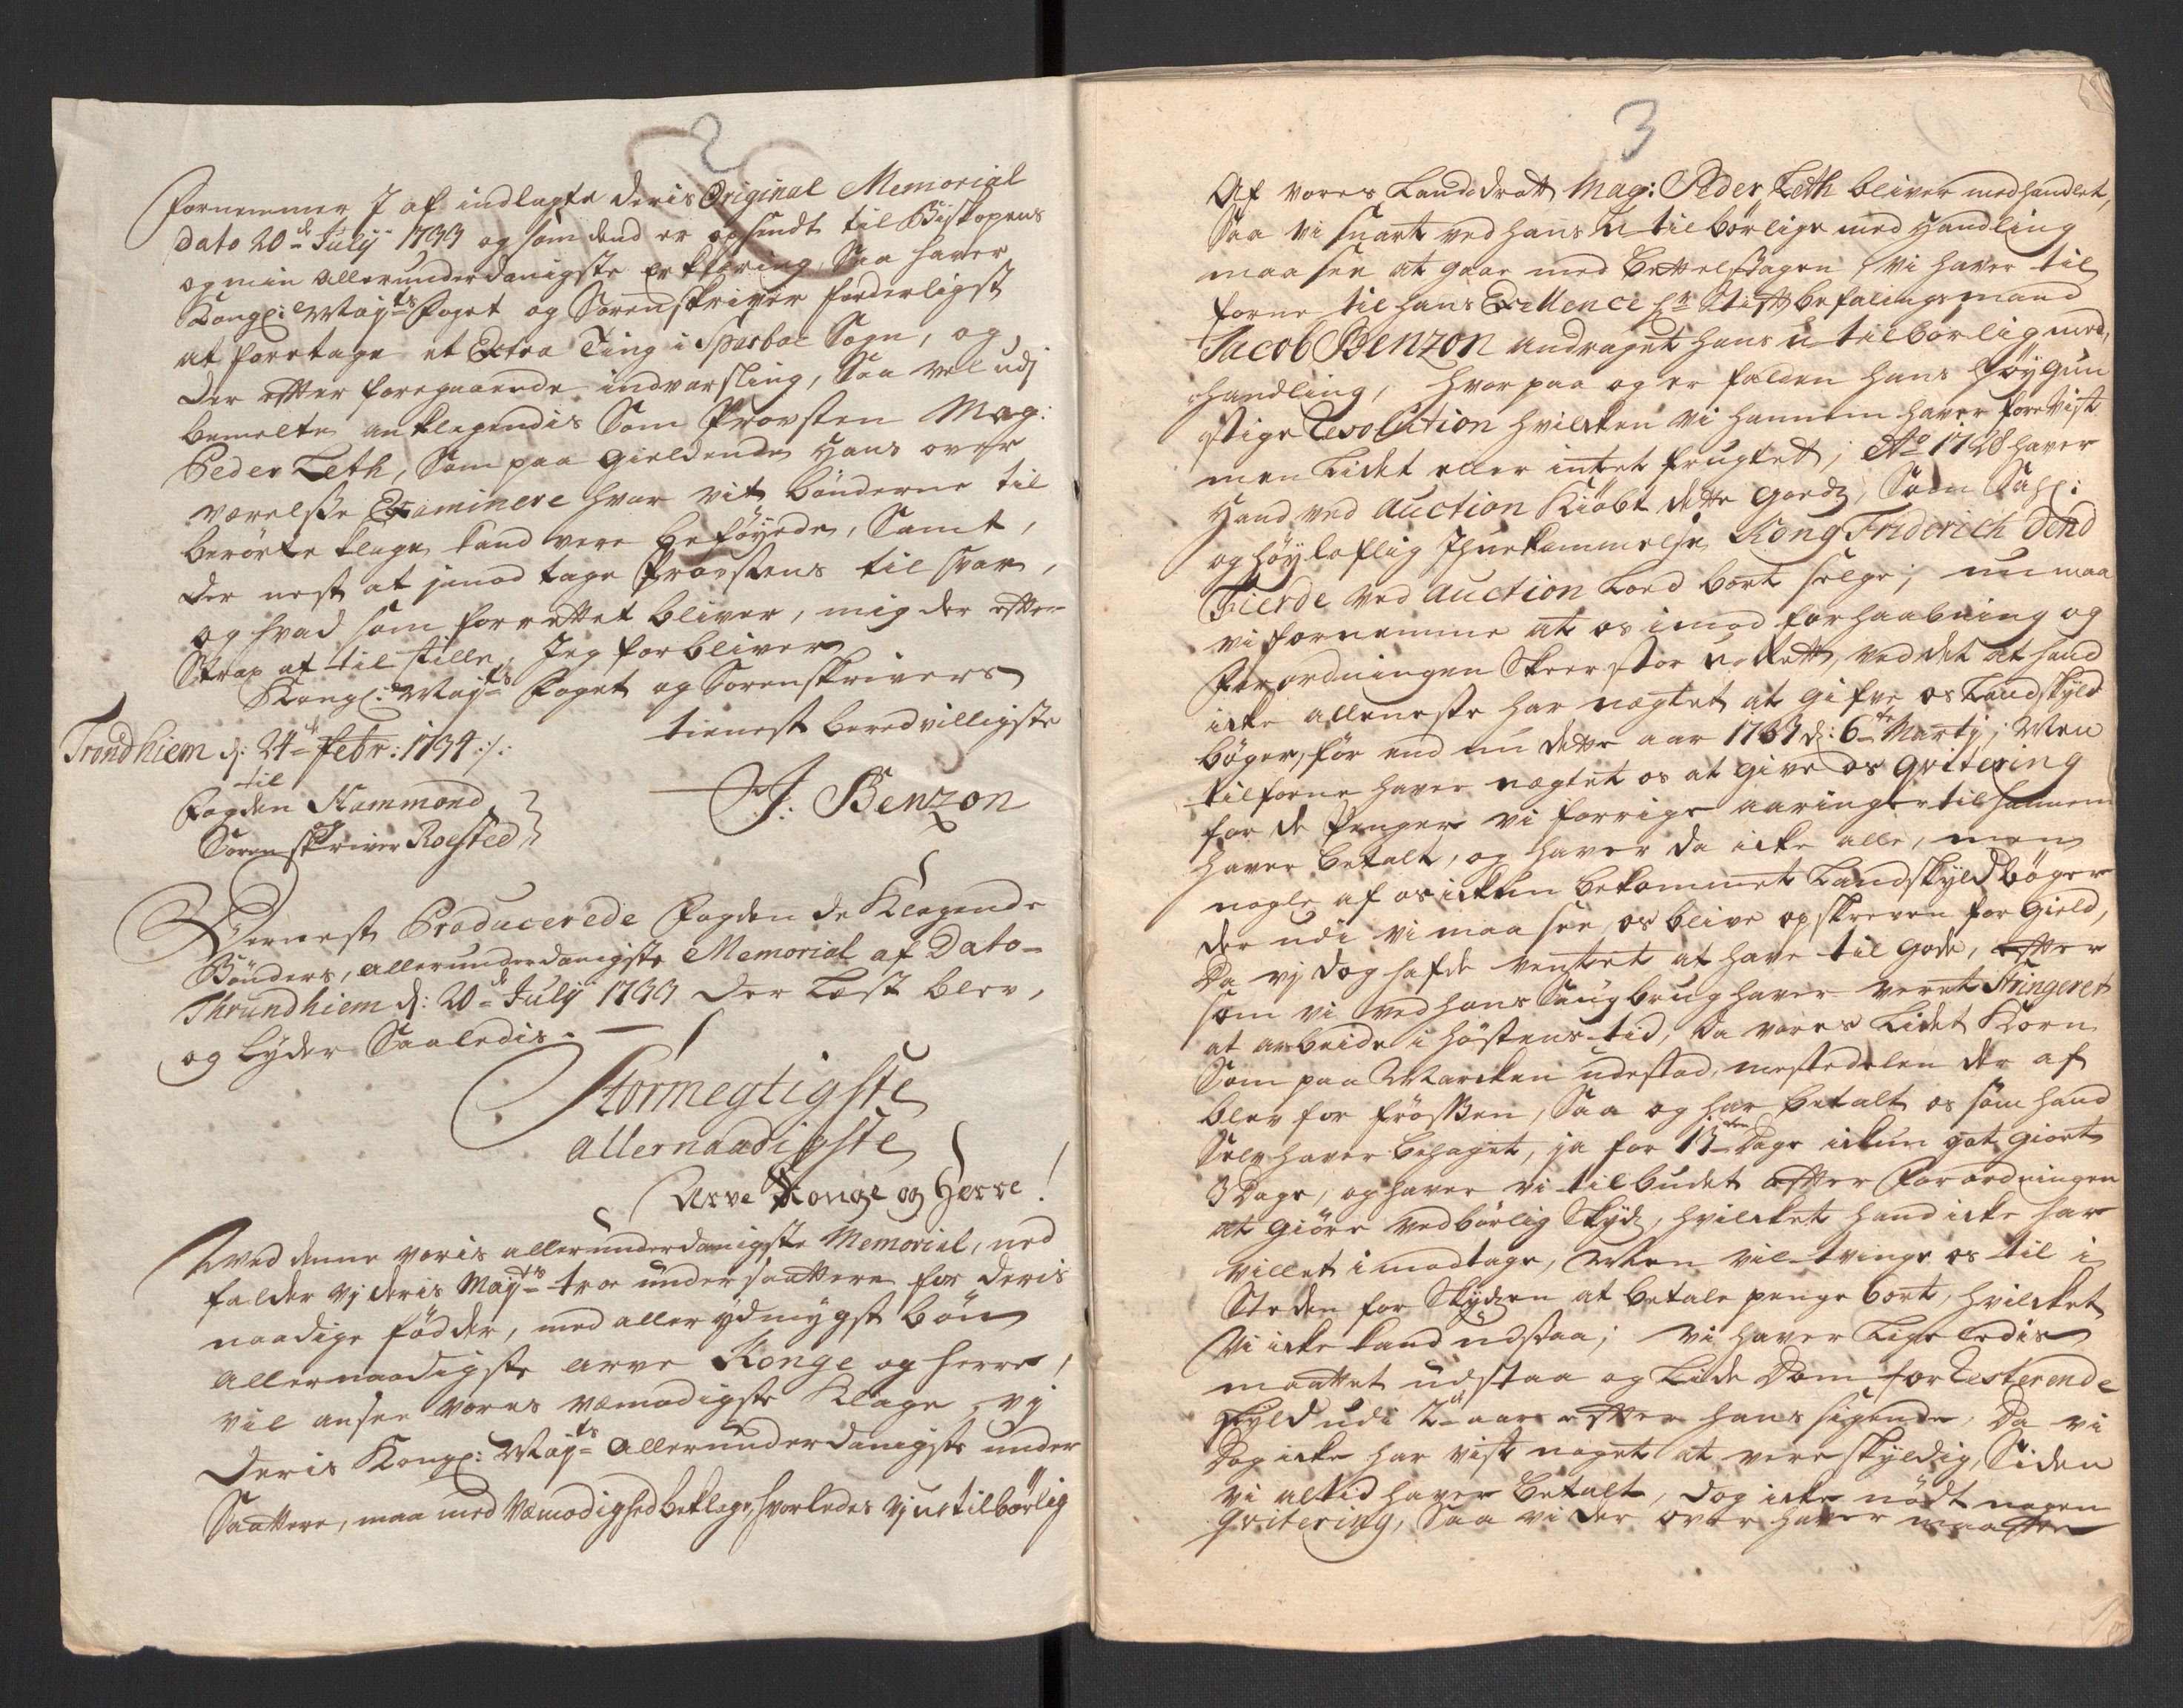 2
fornemmer I af indlagte deris Original Memorial
dato 20de July 1733 og som dend er opsendt til Biskopens
og min allerunderdanigste erklæring, Saa haver
Kongl: Mayts Foget og Sorenskriver forderligst
at foretage et Extra Ting i Sparboe Sogn, og
der efter foregaaende indvarsling, saa vel udj
bemelte anklagendis Som Provsten Mag:
Peder Leth, Som paa gieldende Hans over
værelsse Examinere hvor vit bönderne til
berörte klage kand vere beföyede, Samt,
der nest at jmod tage Provstens til svar,
og hvad som forrettet bliver, mig der efter
Strax at til stille, Jeg forbliver
Kongl: Mayts Foget og Sorenskrivers
Trondhiem d: 24de Febr: 1734 ./. tienest beredvilligste
til
Fogden Hammond
og
Sorenskriver Roested
J: Benzon
Dernest Producerede Fogden de Klagende
Bönders, allerunderdanigste Memorial af Dato
Thrundhiem d: 20de July 1733 der Læst blev,
og lyder Saaledis.
Stormegtigste
allernaadigste
Arve Konge og Herre!
Ved denne voris allerunderdanigste Memorial, ned
falder vj deris Mayts troe undersaattere for deris
naadige födder, med aller ydmygst bön
Allernaadigste arve Konge og herre,
vil ansee vores væmodigste Klage, vj
Deris Kongl: Mayts allerunderdanigste under
Saattere, maa med væmodighed beklage, hvorledes vj utilbörlig
3
Af vores Landdrott Mag: Peder Leth bliver medhandlet,
Saa vi snart ved hans u tilbörlige med Handling
maa see at gaae med Bettelstagen, vi haver til
forne til hans Exellence Hr Stiftbefalingsmand
Jacob Benzon andraget hans u tilbörlig med,
handling, hvorpaa og er falden hans höygun
stige Resolution hvilcken vi hannem haver forevist
men Lidet eller intet frugtet; Ao 1728 haver
Hand ved Auction Kiöbt dette goedz, Som Sahl:
og höyloflig Ihuekommelse Kong Friderich Dend
Fierde ved Auction Loed bort selge; nu maa
vi fornemme at os imod forhaabning og
Forordningen Skeer stor uRett, ved det at hand
icke alleneste har nægtet at gifve os Landskyld
böger, för end nu dette aar 1733 d: 6te Marty; Men
tilforne haver nægtet os at give os Qvitering
for de Penger vi forrige aaringer til hannem
haver betalt, og haver da icke alle, men
nogle af os ickun bekommet Landskyld böger
der udi vi maa see os blive opskreven for gield,
Da vj dog hafde ventet at have til gode, efter
som vi ved hans Saugbrug haver veret Tringeret
at arbeide i höstens tid, da vores Lidet Korn
Som paa Marcken udestod, mestedelen der af
blev for frössen, Saa og har betalt os som hand
Selv haver behaget, ja for 13ten Dage ickun got giort
3 Dage, og haver vi tilbudet efter Forordningen
at giöre vedbörlig Skyds, hvilcket hand icke har
villet imodtage, Men vil tvinge os til i
Steden for Skydsen at betale penge bort, hvilcket
Vi icke kand udstaa; vi haver Ligeledis
maattet udstaa og Lide Dom for Resterende
skyld udi 2de aar efter hans sigende, Da vi
Dog icke har vist noget at vere skyldig, Siden
vi altid haver betalt, dog icke nödt nogen
Qvitering, Saa vi der over haver maattet